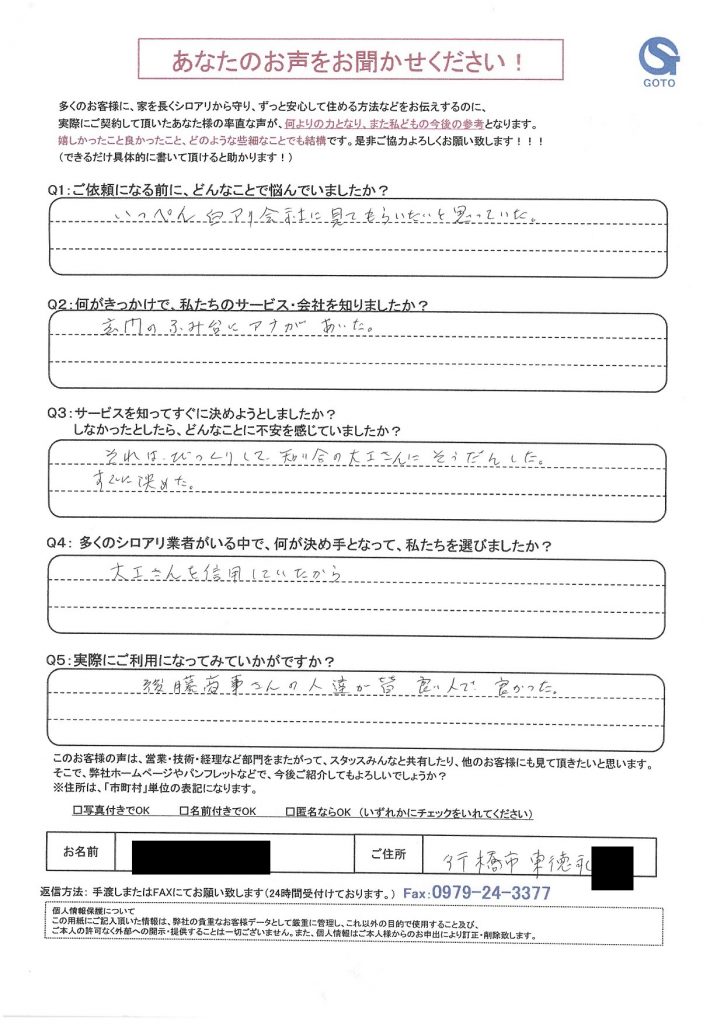 あなたのお声をお聞かせください！
GOTO
多くのお客様に、家を長くシロアリから守り、ずっと安心して住める方法などをお伝えするのに、
実際にご契約して頂いたあなた様の率直な声が、何よりの力となり、また私どもの今後の参考となります。
嬉しかったこと良かったこと、どのような些細なことでも結構です。是非ご協力よろしくお願い致します！！！
（できるだけ具体的に書いて頂けると助かります！）
Q1：ご依頼になる前に、どんなことで悩んでいましたか？
いっぺん白アリ会社に見てもらいたいと思っていた。
Q2：何がきっかけで、私たちのサービス・会社を知りましたか？
玄関のふみ台にアナがあいた。
Q3：サービスを知ってすぐに決めようとしましたか？
しなかったとしたら、どんなことに不安を感じていましたか？
それは、びっくりして、知り合の大工さんにそうだんした。
すぐに決めた。
Q4： 多くのシロアリ業者がいる中で、何が決め手となって、私たちを選びましたか？
大工さんを信用していたから
Q5：実際にご利用になってみていかがですか？
後藤商事さんの人達が皆良い人で良かった。
このお客様の声は、営業・技術・経理など部門をまたがって、スタッスみんなと共有したり、他のお客様にも見て頂きたいと思います。
そこで、弊社ホームページやパンフレットなどで、今後ご紹介してもよろしいでしょうか？
※住所は、「市町村」単位の表記になります。
□写真付きでOK □名前付きでOK □匿名ならOK（いずれかにチェックをいれてください）
お名前 ご住所 行橋市東徳永
返信方法： 手渡しまたはFAXにてお願い致します（24時間受付けております。） Fax：0979-24-3377
個人情報保護について
この用紙にご記入頂いた情報は、弊社の貴重なお客様データとして厳重に管理し、これ以外の目的で使用すること及び、
ご本人の許可なく外部への開示・提供することは一切ございません。また、個人情報はご本人様からのお申出により訂正・削除致します。